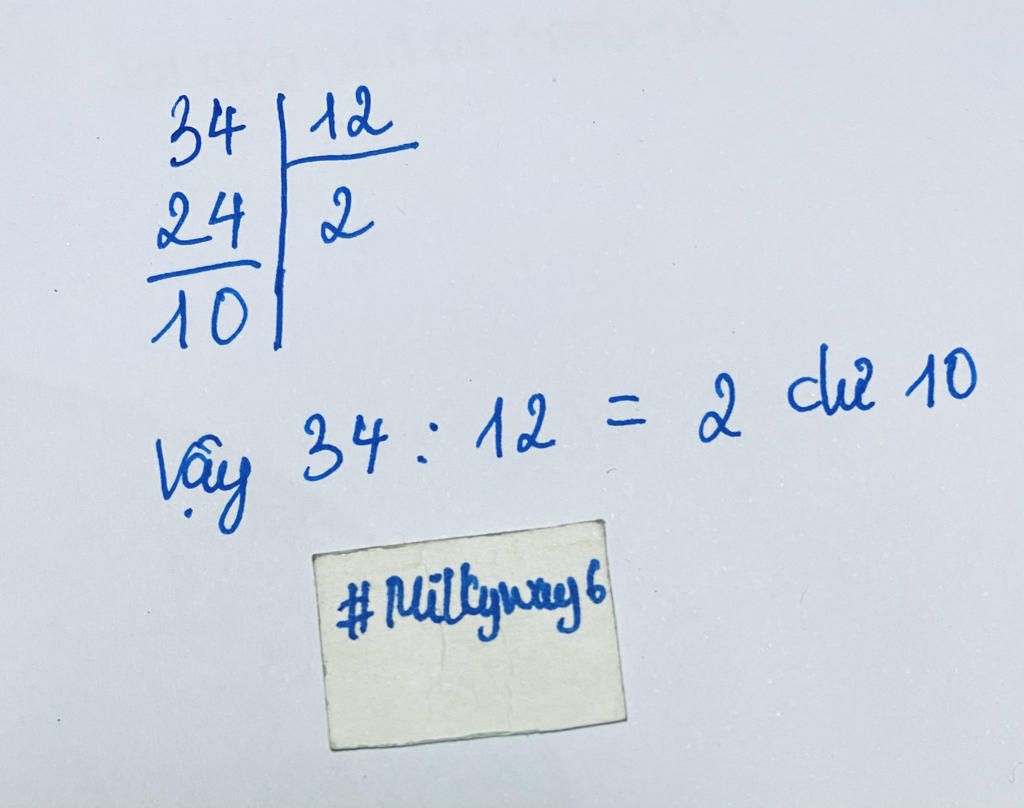 34 | 12
24 | 2
10
Vậy 34 : 12 = 2 dư 10
#Milkyway6